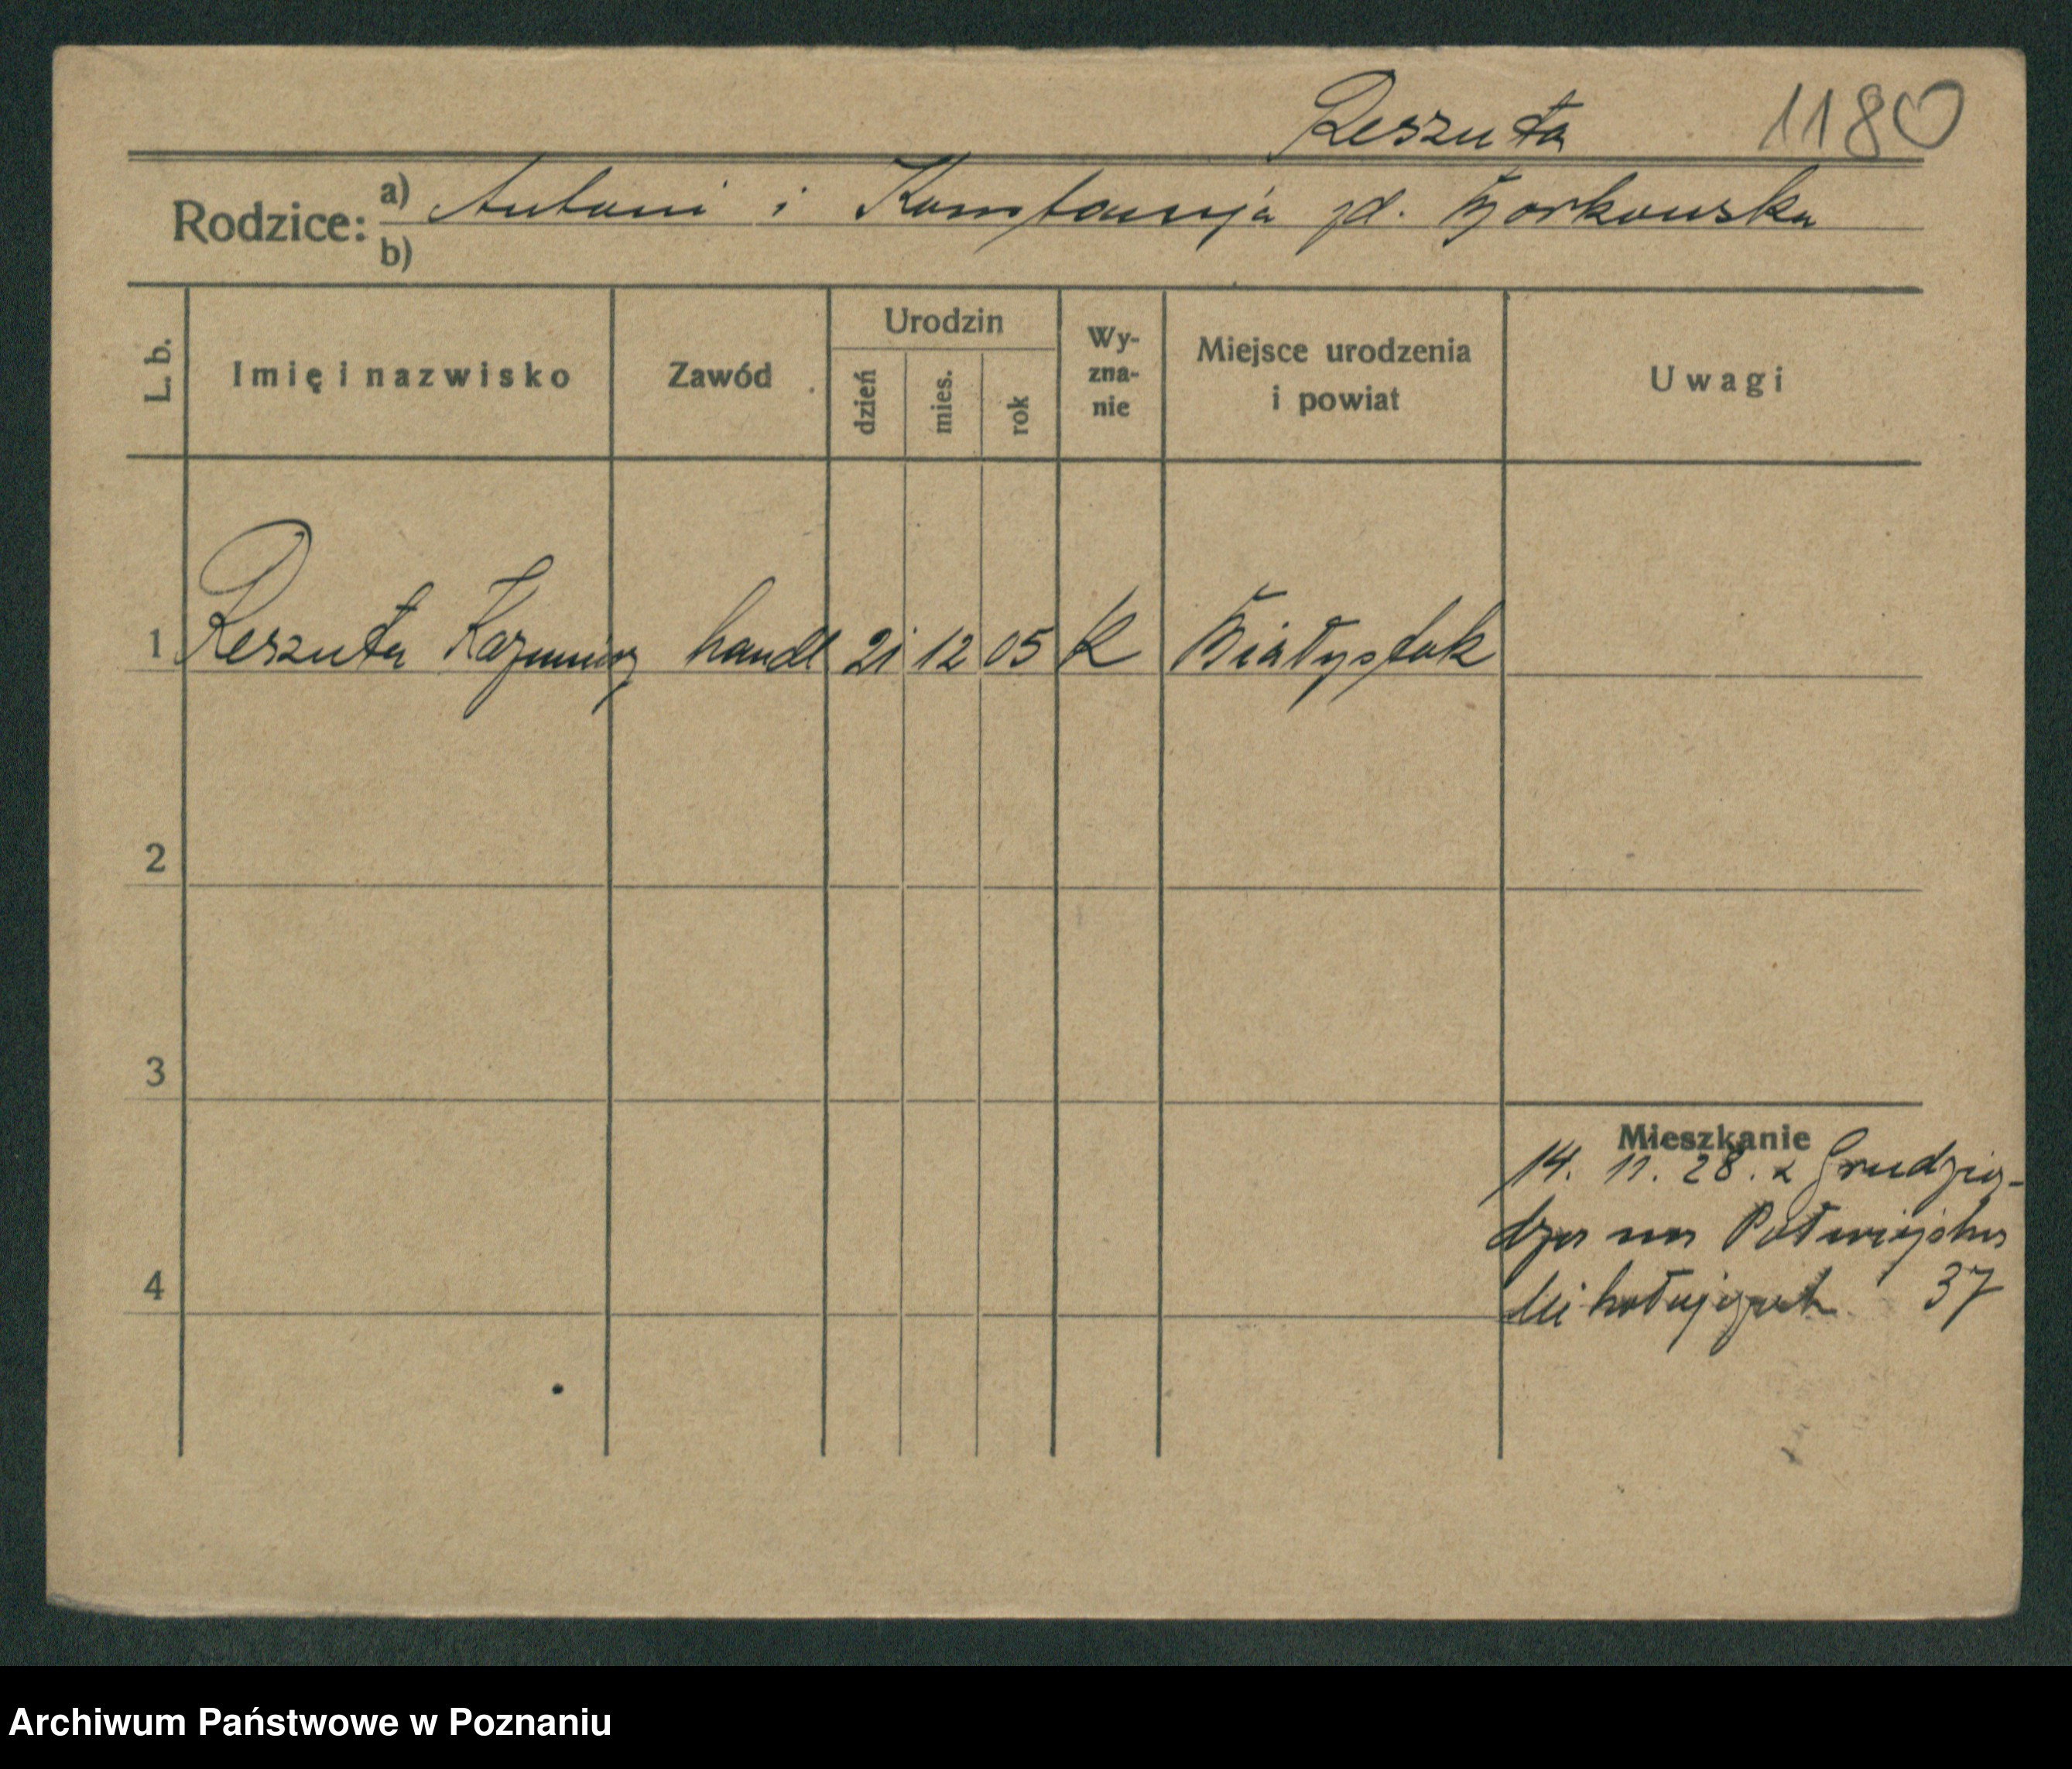 Reszuta 1180
Rodzice: a) Antoni i Konstancja zd. Borkowska
b)
L. b. Imię i nazwisko Zawód Urodzin dzień mies. rok Wy-zna-nie Miejsce urodzenia i powiat Uwagi
1 Reszuta Kazimierz handl 21 12 05 K Białystok
2
3
Mieszkanie
14. 11. 28. z Grudzią-
dza na Półwiejska
4
37
Archiwum Państwowe w Poznaniu